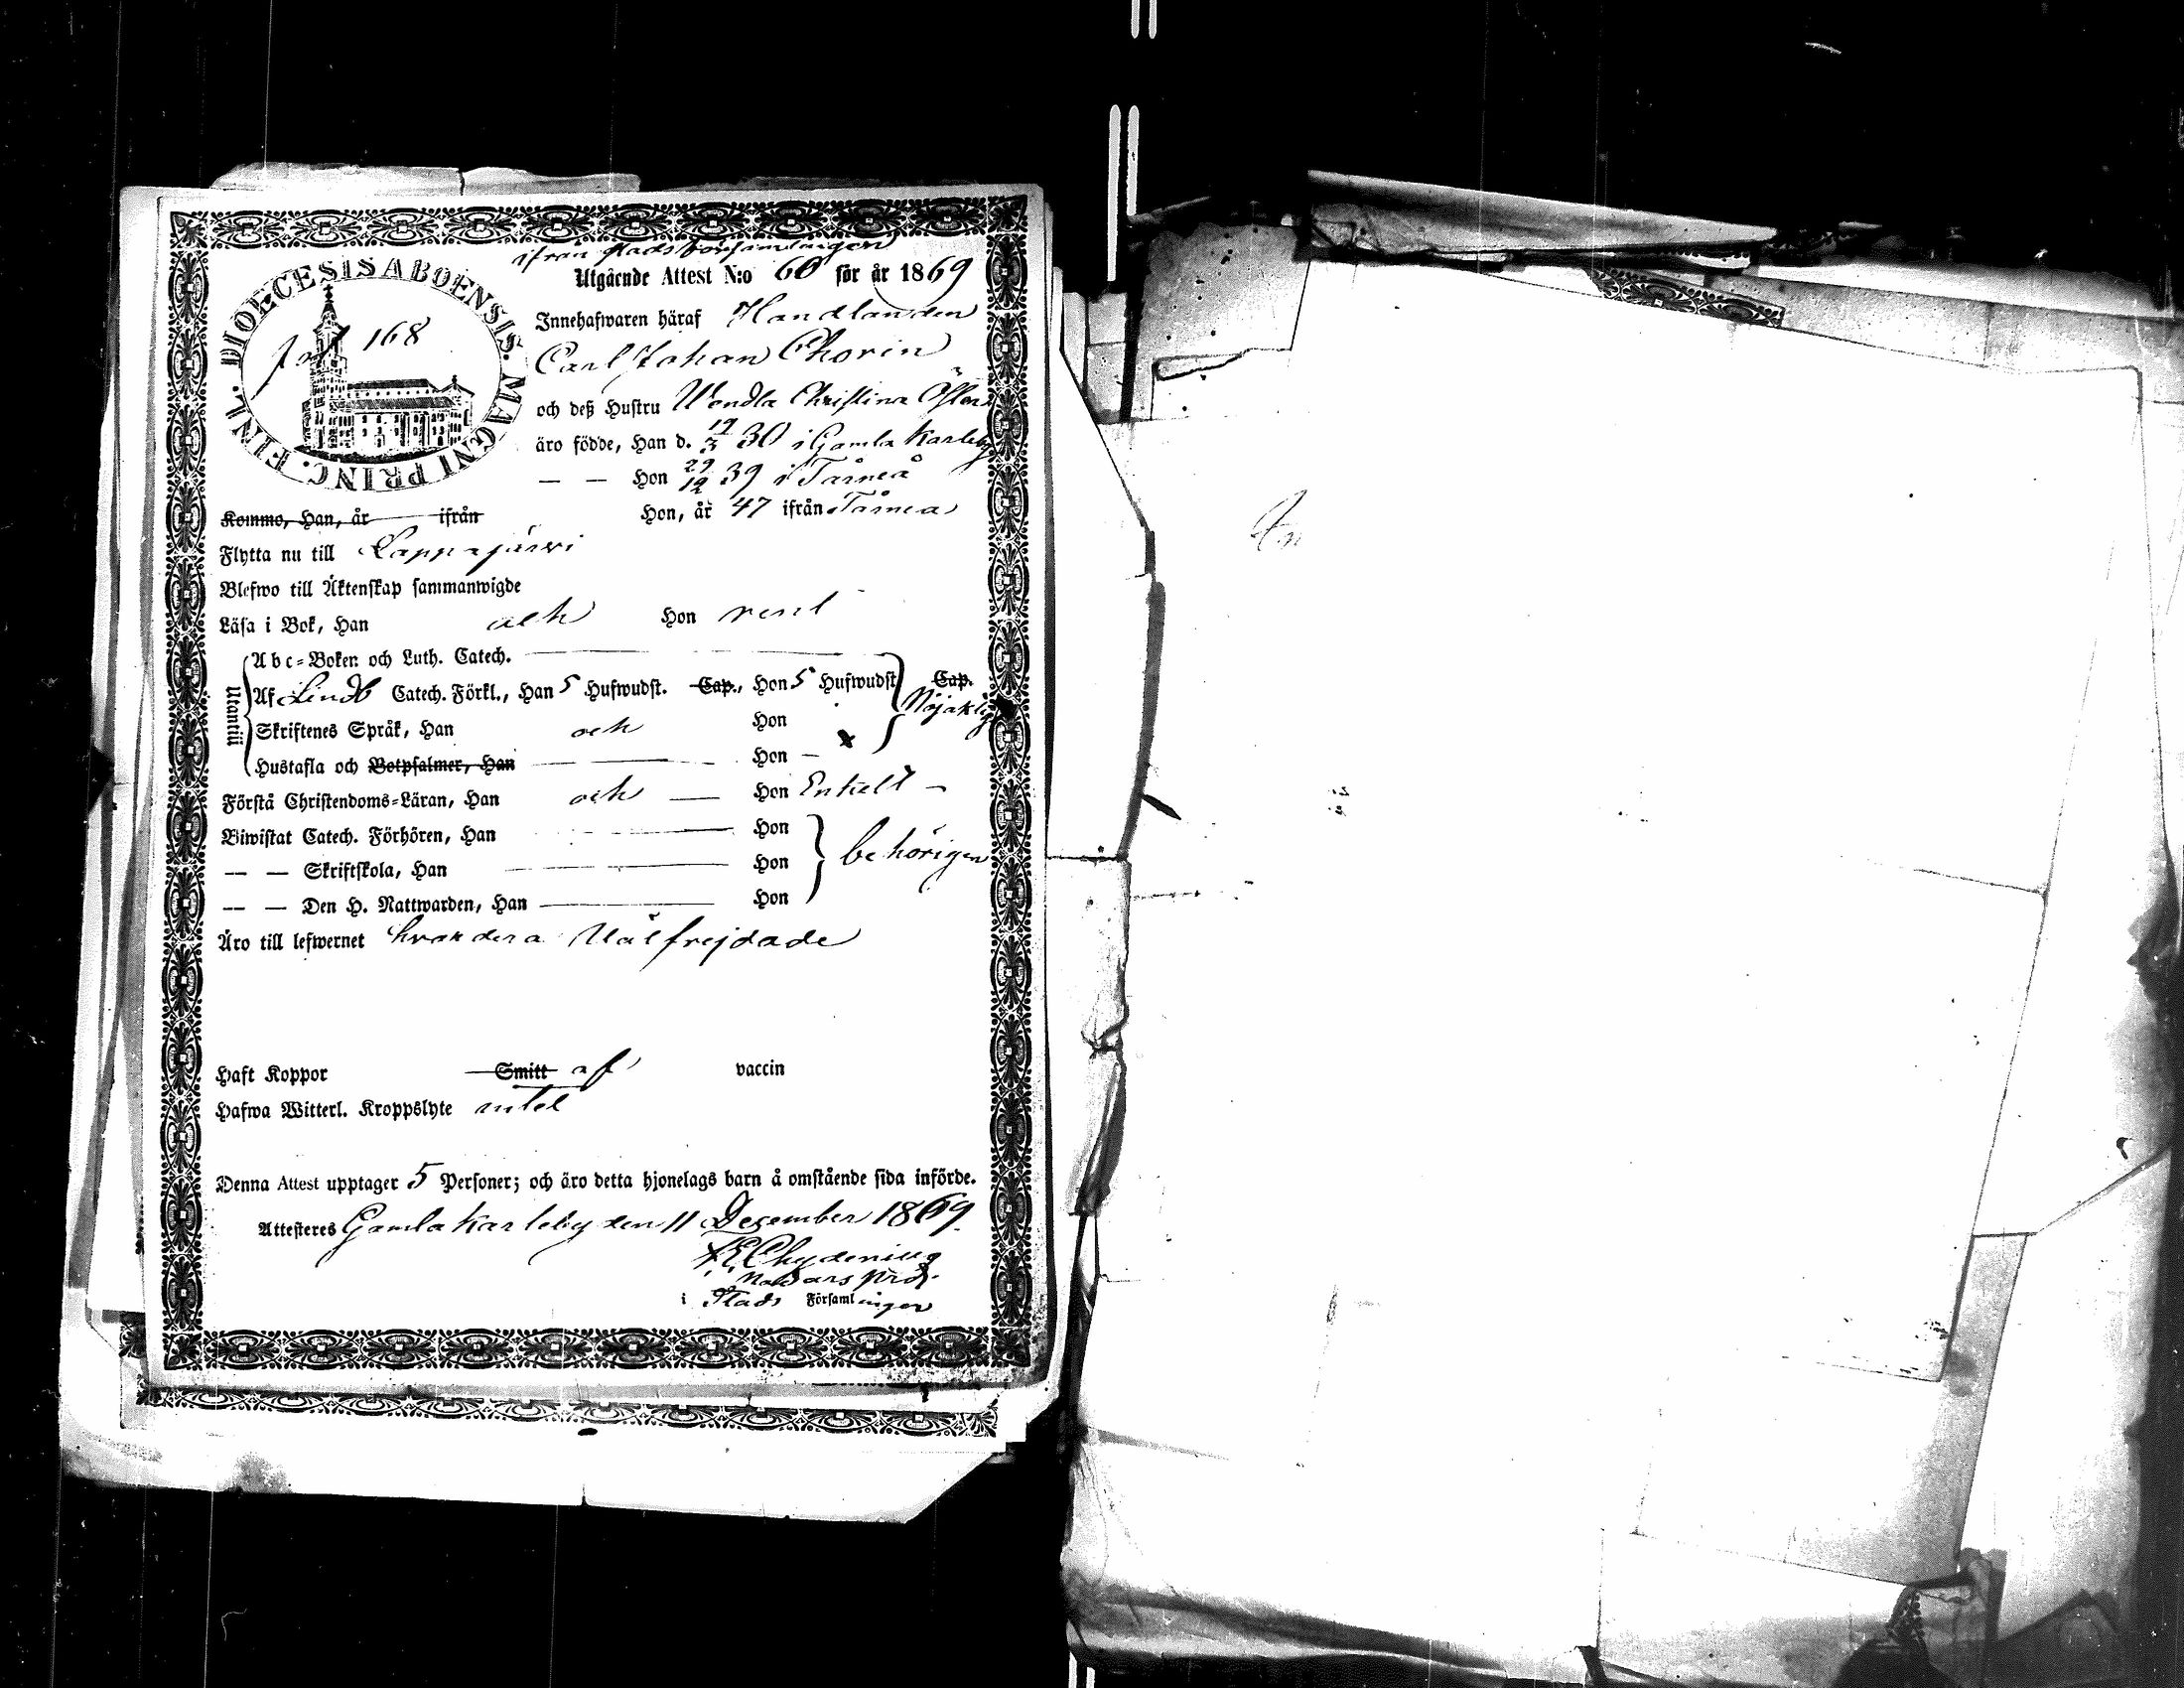 ifrån Stadsförsamlingen
Utgående Attest N:o 60 för år 1869
DIOECESIS ABOENSIS. MAGNI PRINC. FINL.
168
Innehafwaren häraf Handlanden
Carl Johan Chorin
och deß Hustru Wendla Christina Öster
äro födde, Han d. 19/3 30 i Gamla Karleby
— — Hon 29/12 39 i Tårneå
Kommo, Han, år ifrån Hon, år 47 ifrån Tårnea
Flytta nu till Lappajärwi
Blefwo till Äktenskap sammanwigde
Läsa i Bok, Han och Hon rent
Utantill
Abc-Boken och Luth. Catech.
Af Lindb Catech. Förkl., Han 5 Hufwudst. Cap., Hon 5 Hufwudst Cap.
Nöjaktigt
Skriftenes Språk, Han och Hon
Hustafla och Botpsalmer, Han — Hon —
Förstå Christendoms-Läran, Han och — Hon Enkelt —
Biwistat Catech. Förhören, Han Hon
— — Skriftskola, Han Hon behörigen
— — Den H. Nattwarden, Han Hon
Äro till lefwernet hvardera Välfrejdade
Haft Koppor Smitt af vaccin
Hafwa Witterl. Kroppslyte intet
Denna Attest upptager 5 Personer; och äro detta hjonelags barn å omstående sida införde.
Attesteres Gamlakarleby den 11 December 1869.
Chydenius
i Stads Församlingen